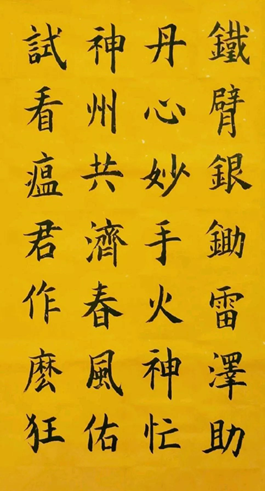 鐵臂銀鋤雷澤助
丹心妙手火神忙
神州共濟春風佑
試看瘟君作麽狂